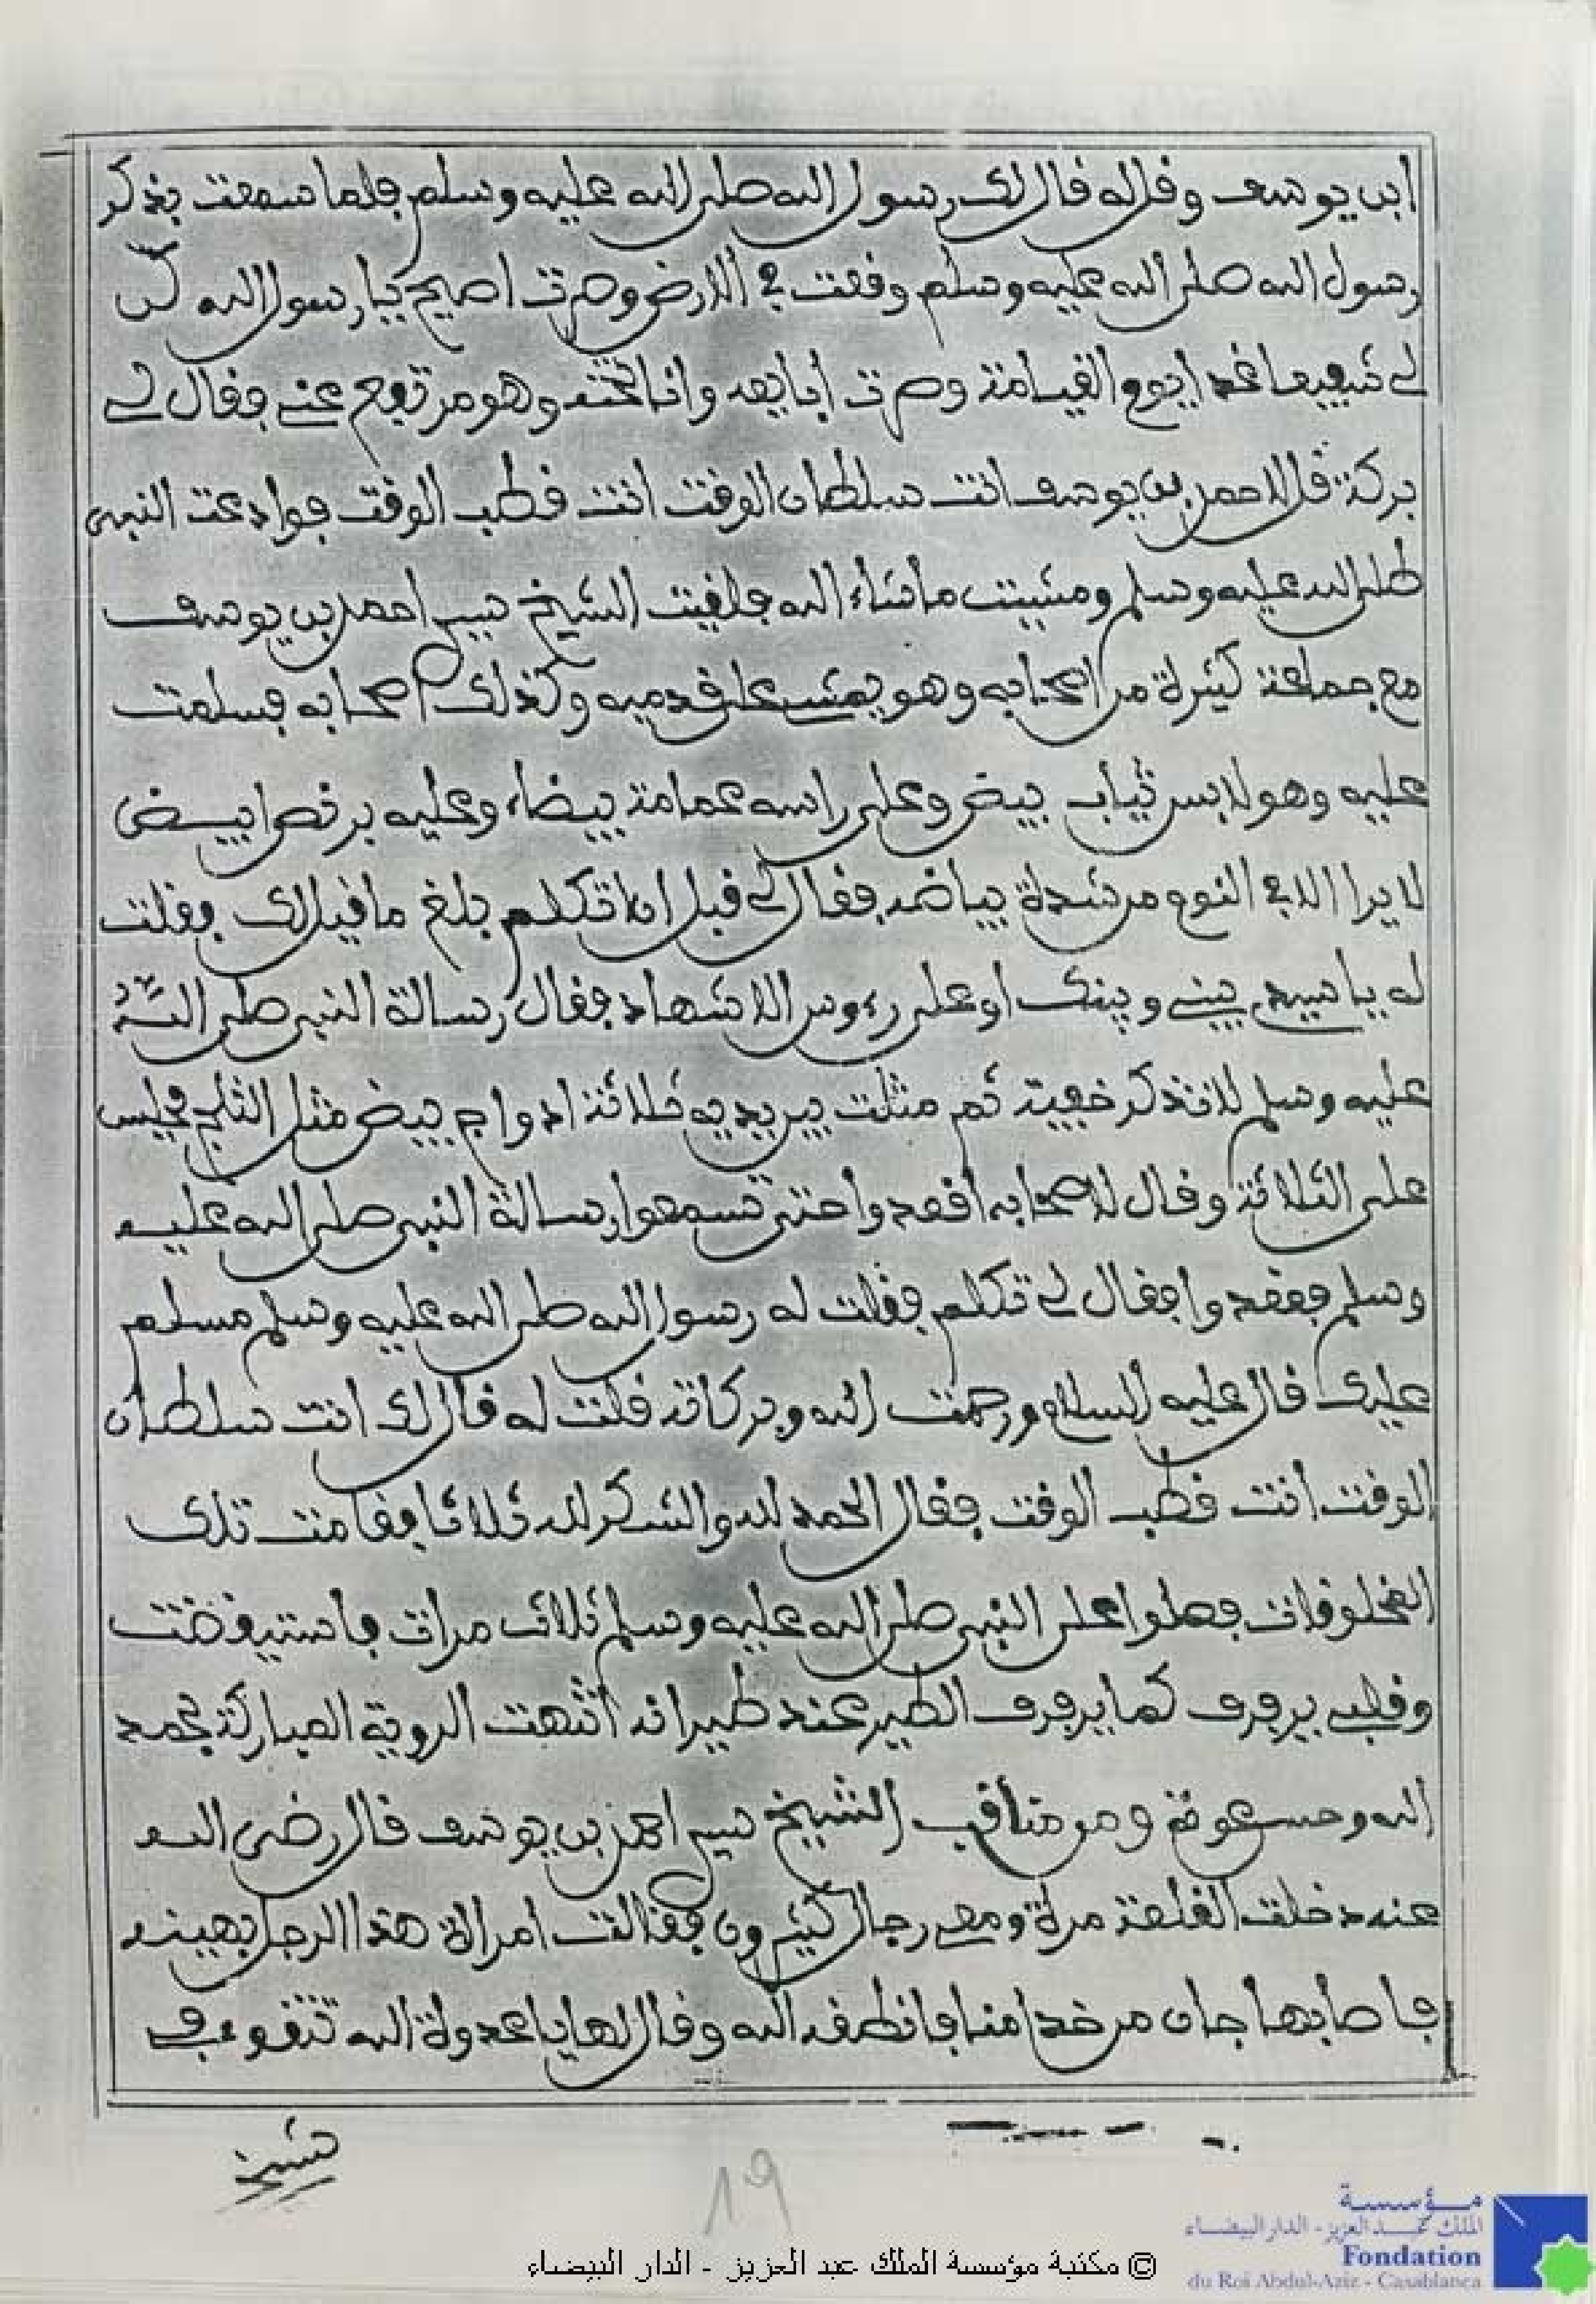 ابن يوسف وقل له قال لك رسول الله صلى الله عليه وسلم فلما سمعت بذكر
رسول الله صلى الله عليه وسلم وقعت في الارض وصرت اصيح يا رسول الله كن
لي شفيعا غدا يوم القيامة وصرت ابايعه وانا تحته وهو مرتفع عني فقال لي
بركة قل لاحمد بن يوسف انت سلطان الوقت انت قطب الوقت فوادعت النبي
صلى الله عليه وسلم ومشيت ما شاء الله فلقيت الشيخ سيد احمد بن يوسف
مع جماعة كثيرة من اصحابه وهو يمشي على قدميه وكذلك اصحابه فسلمت
عليه وهو لابس ثياب بيض وعلى راسه عمامة بيضاء وعليه برنص ابيض
لا يرا الا في النوم من شدة بياضه فقال لي قبل ان اتكلم بلغ ما قيل لك فقلت
له يا سيدي بيني وبينك او على رءوس الاشهاد فقال رسالة النبي صلى الله
عليه وسلم لا تذكر خفية ثم مثلت بين يديه ثلاثة ادواح بيض مثل الثلج فجلس
على الثلاثة وقال لاصحابه اقعدوا حتى تسمعوا رسالة النبي صلى الله عليه
وسلم فقعدوا فقال لي تكلم فقلت له رسول الله صلى الله عليه وسلم مسلم
عليك قال عليه السلام ورحمت الله وبركاته قلت له قال لك انت سلطان
الوقت انت قطب الوقت فقال الحمد لله والشكر لله ثلاثا فقامت تلك
المخلوقات فصلوا على النبي صلى الله عليه وسلم ثلاث مرات فاستيقضت
وقلبي يرفرف كما يرفرف الطير عند طيرانه انتهت الروية المباركة بحمد
الله وحسن عونه ومن مناقب الشيخ سيد احمد بن يوسف قال رضي الله
عنه دخلت القلعة مرة ومعي رجال كثيرون فقالت امراة هذا الرجل بعينه
فاصابها جان من خدامنا فانطقه الله وقال لها يا عدوة الله تتقوي في
19
© مكتبة مؤسسة الملك عبد العزيز - الدار البيضاء
مؤسسة
الملك عبد العزيز - الدار البيضاء
Fondation
du Roi Abdul-Aziz - Casablanca